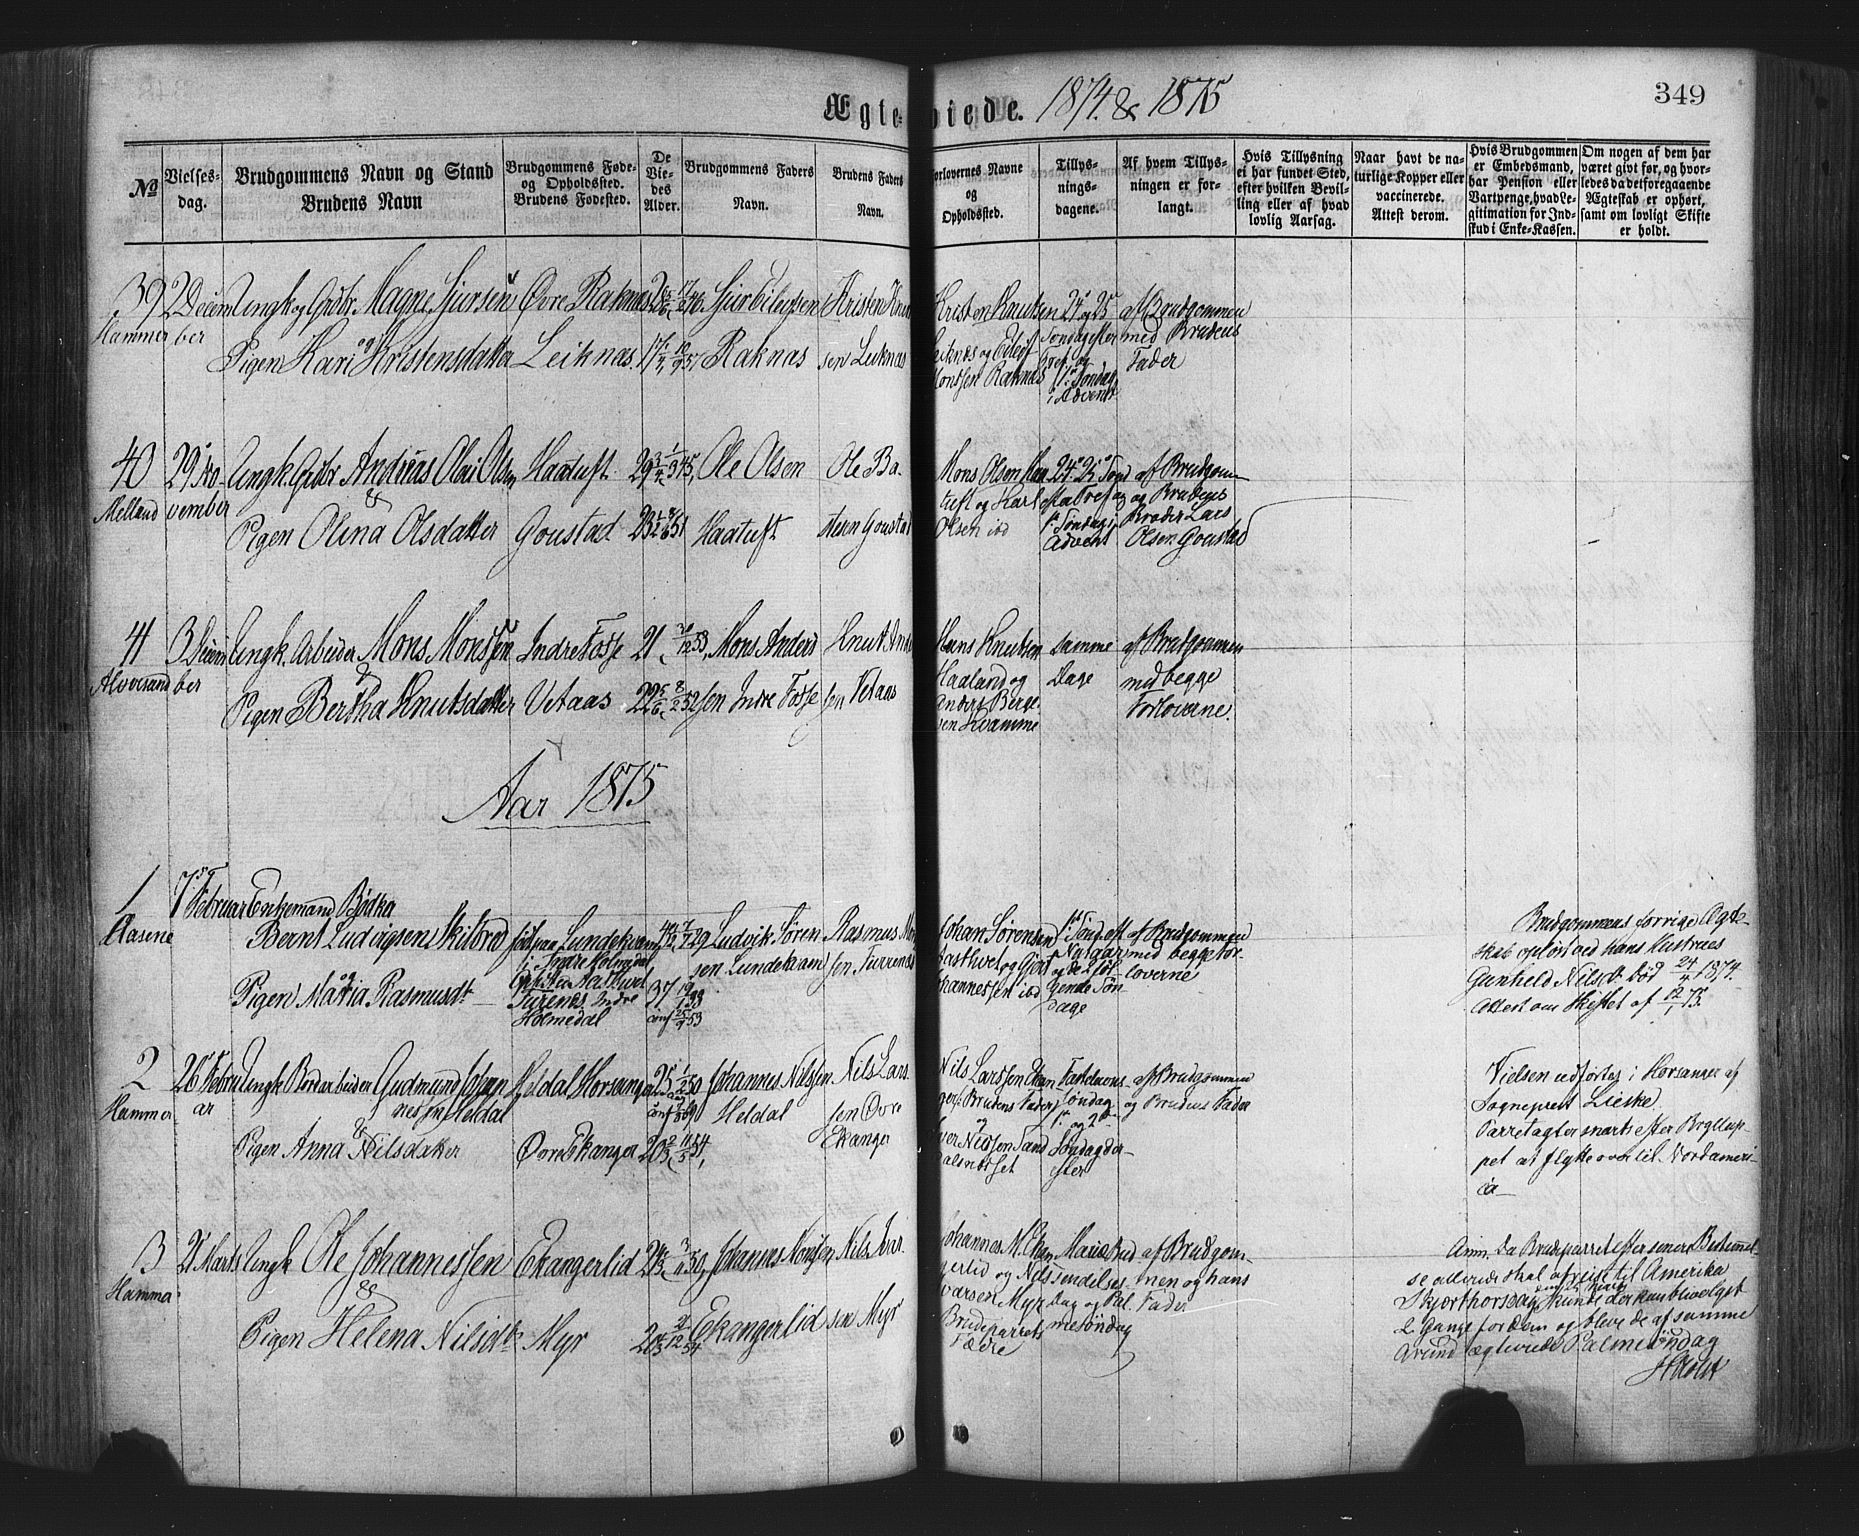 Ægte-
viede. 1874. & 1875
349
No
Vielses-
dag.
Brudgommens Navn og Stand
Brudens Navn
Brudgommens Føde-
og Opholdssted.
Brudens Fødested.
De
Vie-
des
Alder.
Brudgommens Faders
Navn.
Brudens Faders
Navn.
orlovernes Navne
og
Opholdssted.
Tillys-
nings-
dagene.
Af hvem Tillys-
ningen er for-
langt.
Hvis Tillysning
ei har fundet Sted,
efter hvilken Bevil-
ling eller af hvad
lovlig Aarsag.
Naar havt de na-
turlige Kopper eller
vaccinerede.
Attest derom.
Hvis Brudgommen
er Embedsmand,
har Pension eller
Vartpenge, hvad Le-
gitimation for Ind-
skud i Enke-Kassen.
Om nogen af dem har
været givt før, og hvor-
ledes da det foregaaende
Ægteskab er ophørt,
samt om lovligt Skifte
er holdt.
39
Hammer
2 Decem
ber
Ungk og Grdbr. Magne Sjursen
og
Pigen Kari Kristensdatter
Øvre Raknæs
Leiknæs.
Sjur Eilufsen
Raknæs
Kristen Knut
sen Leiknæs
Kristen Knutsen
Leiknæs og Eiluf
Monssen Raknæs
24 og 25
Søndag efter
Tref. og
1ste Søndag
i Advent
af Brudgommen
med Brudens
Fader
40
Mælland
29 No-
vember
Ungk. Grdbr Andreas Olai Olsen
&
Pigen Olina Olsdatter
Haatuft
Goustad
Ole Olsen
Haatuft
Ole Ba-
stesen Goustad
Mons Olsen Haa
tuft og Karl
Olsen ibd
24 25 Sønd
efter Tref og
1ste Søndag i
Advent
af Brudgom
og Brudens
Broder Lars
Olsen Goustad
41
Alversund
3 Decem
ber
Ungk. Arbeider Mons Monssen
&
Pigen Bertha Knutsdatter
Indre Fosse
Vetaas
21 30/12 53
22 5/6 8/2 52
Mons Anders
sen Indre Fosse
Knut Ande
sen Vetaas
Hans Knutsen
Haaland og
Anders Berge
sen Kvamme
samme
Dage
af Brudgommen
med begge
Forloverne.
Aar 1875
1
Aasene
7de
Februar
Enkemand Bødker
Bernt Ludvigsen Skilbred
og
Pigen Maria Rasmusdt
født paa Lundekvam
i Indre Holmedal
Opholdsst Aasthvet
Furenes Indre
Holmedal
37 19/1 38
conf 25/9 53
Ludvik Sören
sen Lundekvam
Rasmus Mor
sen Furrenes
Johan Sørensen
Aasthvet og Gjert
Johannessen ibd
1ste Sønd. eft
Nytaar
og de 2 føl-
gende Søn
dage
af Brudgommen
med begge For-
loverne
Brudgommens forrige Ægte-
skab opløst ved hans Hustrues
Gunhild Nilsdt. Død 24/11 1874.
Attest om Skiftet af 12/1 75.
2
Hammer
26 Febru
ar
Ungk Bordarbeider Gudmund Johan
nessen Heldal
&
Pigen Anna Nilsdatter
Heldal Horsanger
Øvre Ekanger
Johannes Nilssen
Heldal
Nils Lars
sen Øvre
Ekanger
Nils Larssen Ekan
ger Brudens Fader
og
Iver Nilssen Sand
Fastelavns
Søndag
1ste og 2den
Søndag der-
efter
af Brudgommen
og Brudens Fader
Vielsen udførtes i Horsanger af
Sogneprest Lieske.
Parret agter snart efter Bryllup-
pet at flytte over til Nordameri-
ca
3
Hammer
21 Marts
Ungk Ole Johannessen
&
Pigen Helena Nilsdt
Ekangerlid
Myr
Johannes Monsen
Ekangerlid
Nils Ivar-
sen Myr
Johannes M. Ekan
gerlid og Nils
Ivarsen Myr
Brudeparrets
Fædre
Mariæ Bud
sendelses
Dag og Pal
mesøndag
af Brudgom-
men og hans
Fader
Anm. Da Brudeparret efter senere Bestemmel-
se allerede skal afreise til Amerika
Skjærthorsdag, kunde der kun blive lyst
2 Gange for dem og bleve de af samme
Grund ægteviede Palmesøndag